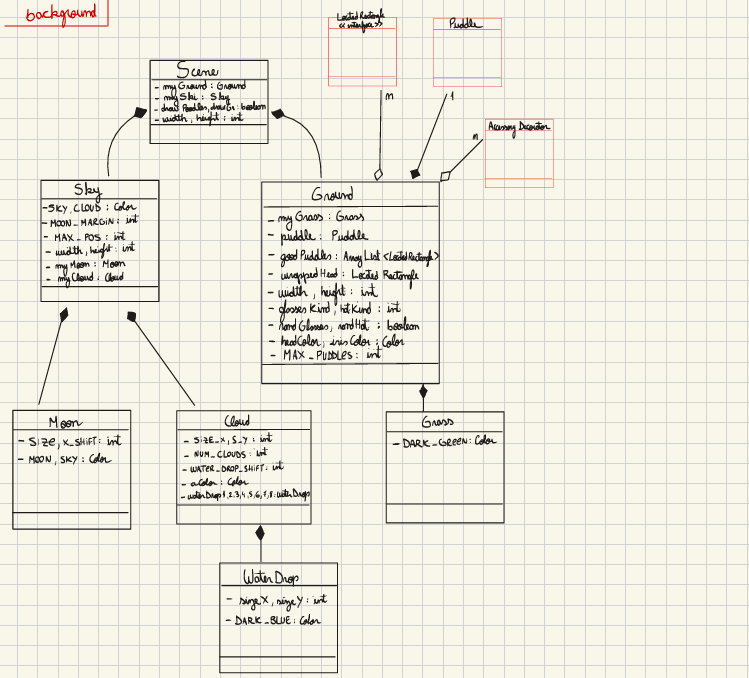 background
Located Rectangle
<< interface >>
m
Puddle
1
Accessory Decorator
m
Scene
- my Ground : Ground
- my Ski : Sky
- draw Poodles, draw Gr : boolean
- width, height : int
Sky
- SKY, CLOUD : Color
- MOON_MARGIN : int
- MAX_POS : int
- width, height : int
- my Moon : Moon
- my Cloud : Cloud
Ground
- my Grass : Grass
- puddle : Puddle
- goodPuddles : Array List <Located Rectangle>
- wrapped Head : Located Rectangle
- width, height : int
- glasses Kind, hat Kind : int
- rand Glasses, rand Hat : boolean
- head Color, iris Color : Color
- MAX_PUDDLES : int
Moon
- SIZE, X_SHIFT : int
- MOON, SKY : Color
Cloud
- SIZE_X, S_Y : int
- NUM_CLOUDS : int
- WATER_DROP_SHIFT : int
- aColor : Color
- waterDrop 1,2,3,4,5,6,7,8 : waterDrop
Grass
- DARK_GREEN : Color
Water Drop
- size X, size Y : int
- DARK_BLUE : Color